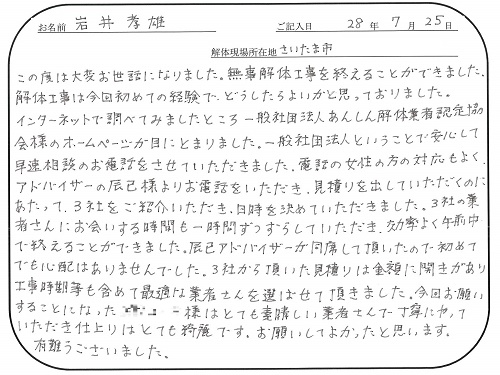 お名前 岩井 孝雄 ご記入日 28 年 7 月 25 日
解体現場所在地 さいたま市
この度は大変お世話になりました。無事解体工事を終えることができました。
解体工事は今回初めての経験で、どうしたらよいかと思っておりました。
インターネットで調べてみましたところ一般社団法人あんしん解体業者認定協
会様のホームページが目にとまりました。一般社団法人ということで安心して
早速相談のお電話をさせていただきました。電話の女性の方の対応もよく、
アドバイザーの辰己様よりお電話をいただき、見積りを出していただくのに
あたって、3社をご紹介いただき、日時を決めていただきました。3社の業
者さんにお会いする時間も一時間ずつずらしていただき、効率よく午前中
で終えることができました。辰己アドバイザーが同席して頂いたので初めて
でも心配はありませんでした。3社から頂いた見積りは金額に開きがあり
工事時期等も含めて最適な業者さんを選ばせて頂きました。今回お願い
することになった 様はとても素晴しい業者さんで丁寧にやって
いただき仕上りはとても綺麗です。お願いしてよかったと思います。
有難うございました。